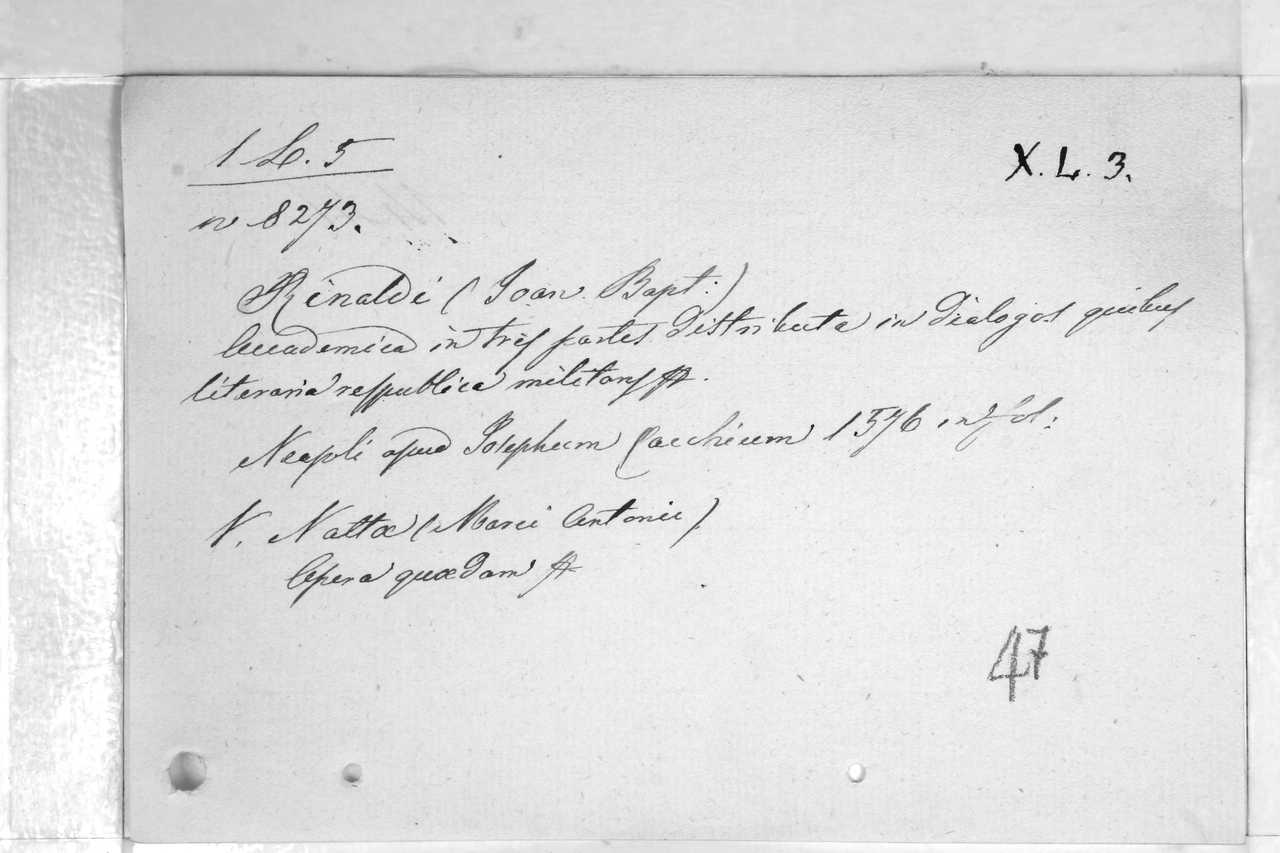 1 L. 5
X. L. 3.
n 8273.
Rinaldi (Joan. Bapt:)
Academica in tres partes distributa in dialogos quibus
literaria respublica militans
Neapoli apud Josephum Cacchium 1576 in fol:
V. Nattæ (Marci Antonii)
Opera quædam
47